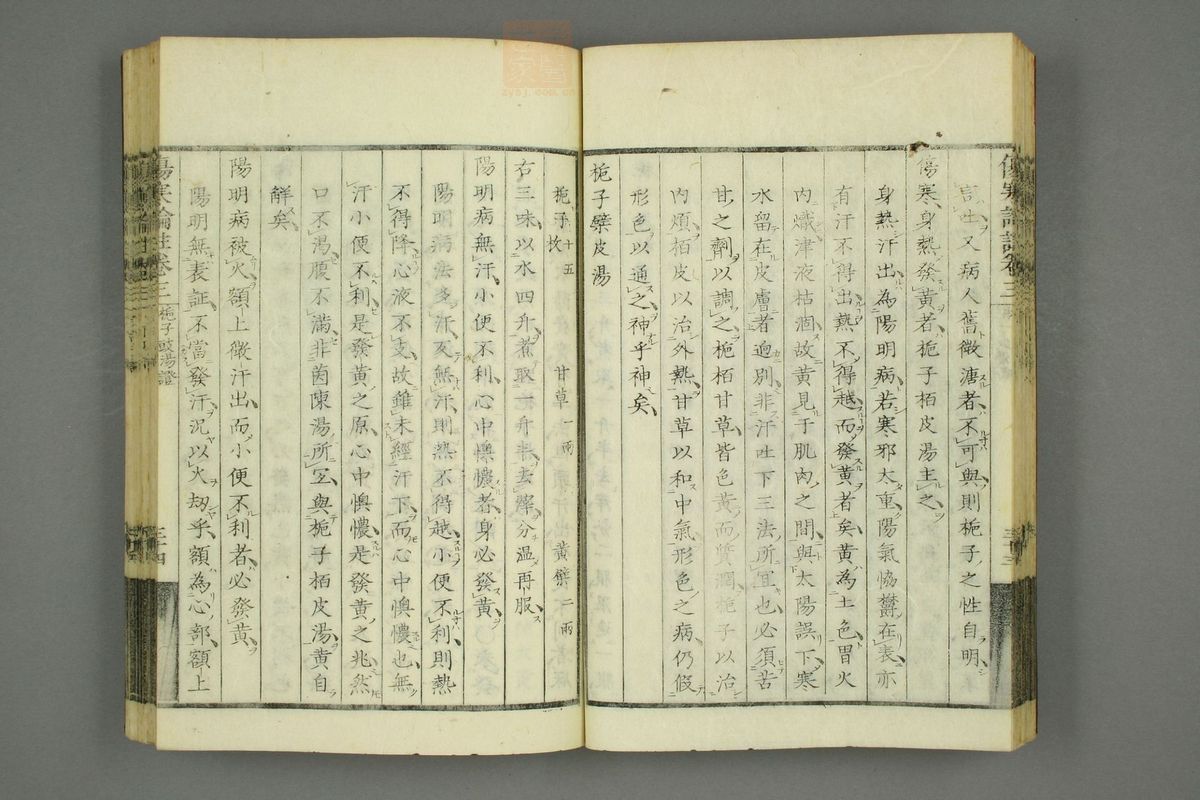 言吐又病人舊微溏者不可與則梔子之性自明
傷寒身熱發黃者梔子柏皮湯主之
身熱汗出為陽明病若寒邪太重陽氣怫鬱在表亦
有汗不得出熱不得越而發黃者矣黃為土色胃火
內熾津液枯涸故黃見于肌肉之間與太陽誤下寒
水留在皮膚者迥別非汗吐下三法所宜也必須苦
甘之劑以調之梔柏甘草皆色黃而質潤梔子以治
內煩栢皮以治外熱甘草以和中氣形色之病仍假
形色以通之神乎神矣
梔子檗皮湯
梔子十五枚 甘草一兩 黃檗二兩
右三味以水四升煮取一升半去滓分溫再服
陽明病無汗小便不利心中懊憹者身必發黃
陽明病法多汗反無汗則熱不得越小便不利則熱
不得降心液不支故雖未經汗下而心中懊憹也無
汗小便不利是發黃之原心中懊憹是發黃之兆然
口不渴腹不滿非茵陳湯所宜與梔子栢皮湯黃自
解矣
陽明病被火額上微汗出而小便不利者必發黃
陽明無表証不當發汗況以火劫乎額為心部額上
傷寒論註卷三 梔子豉湯證 三十四